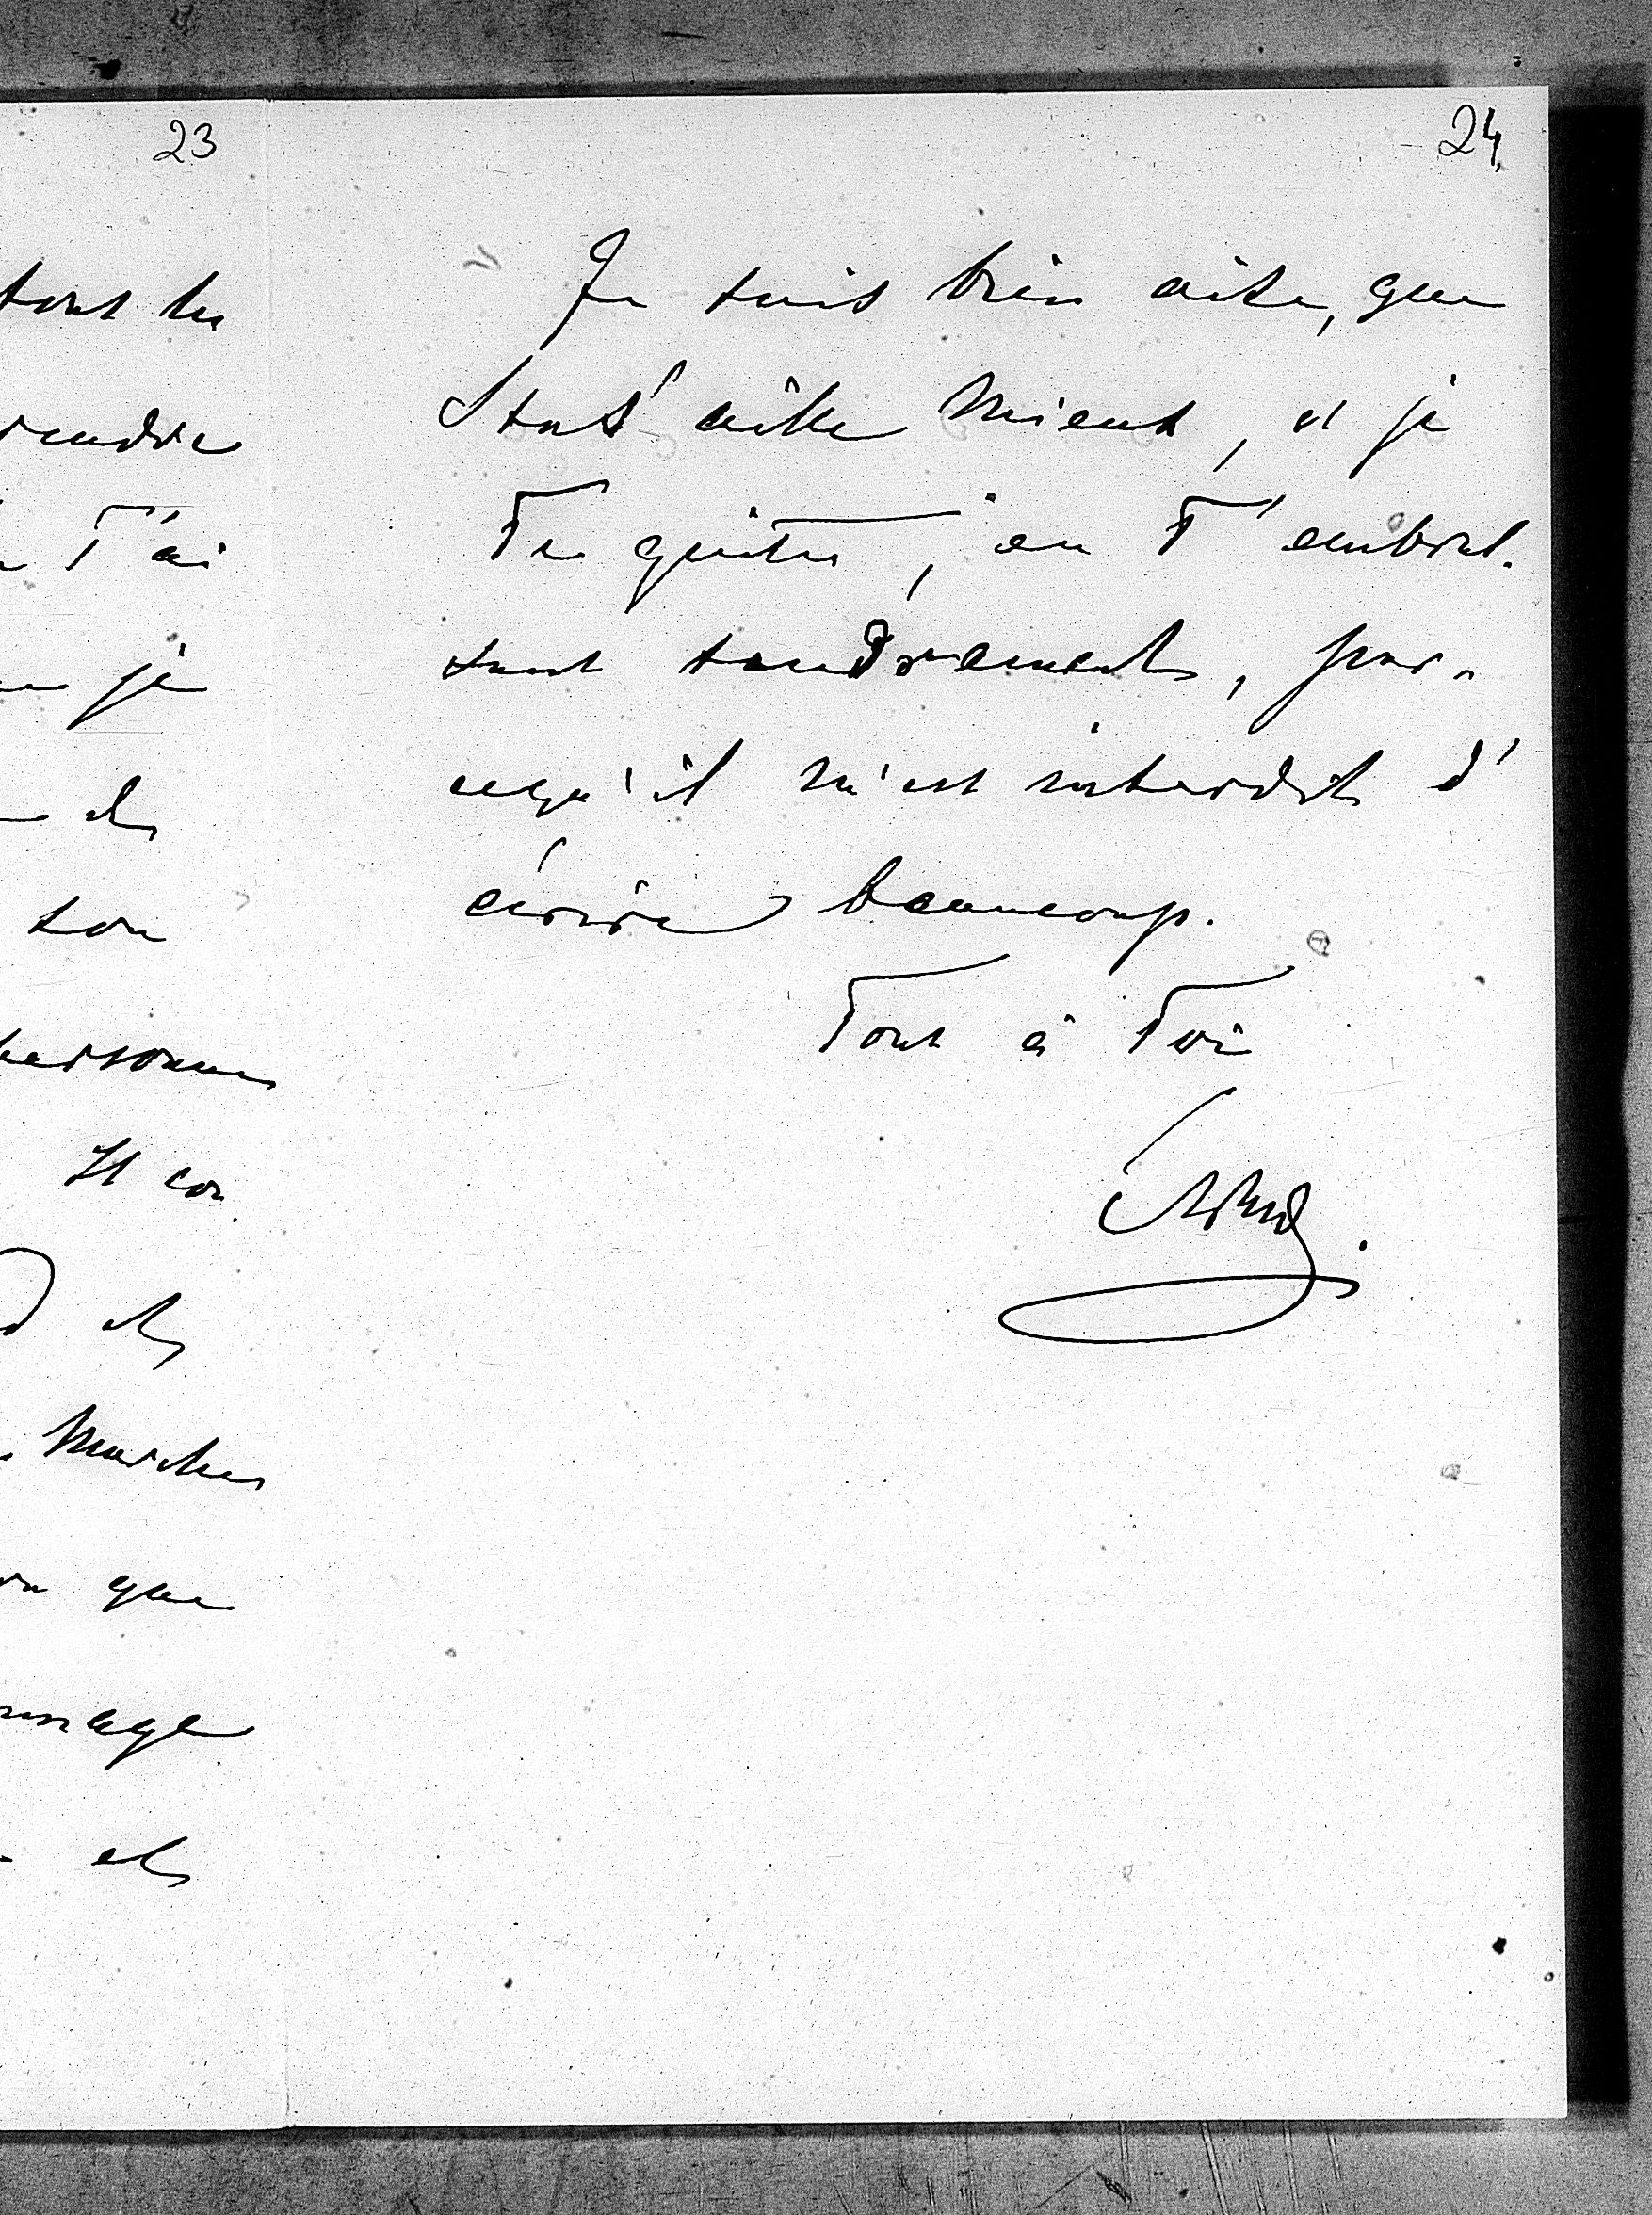 23
tout les
rendre
T'ai
je
de
son
personnes
Il con
de
Marches
que
et
24
Je suis bien aise, que
Stas' aille mieux, et je
Te quitte, en T'embras-
sant tendrement, par-
cequ'il m'est interdit d'
écrire beaucoup.
Tout à Toi